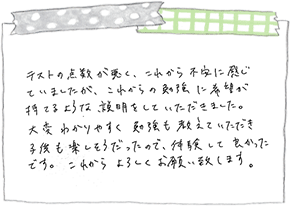 テストの点数が悪く、これから不安に感じ
ていましたが、これからの勉強に希望が
持てるような説明をしていただきました。
大変わかりやすく勉強も教えていただき
子供も楽しそうだったので、体験して良かった
です。これからよろしくお願い致します。